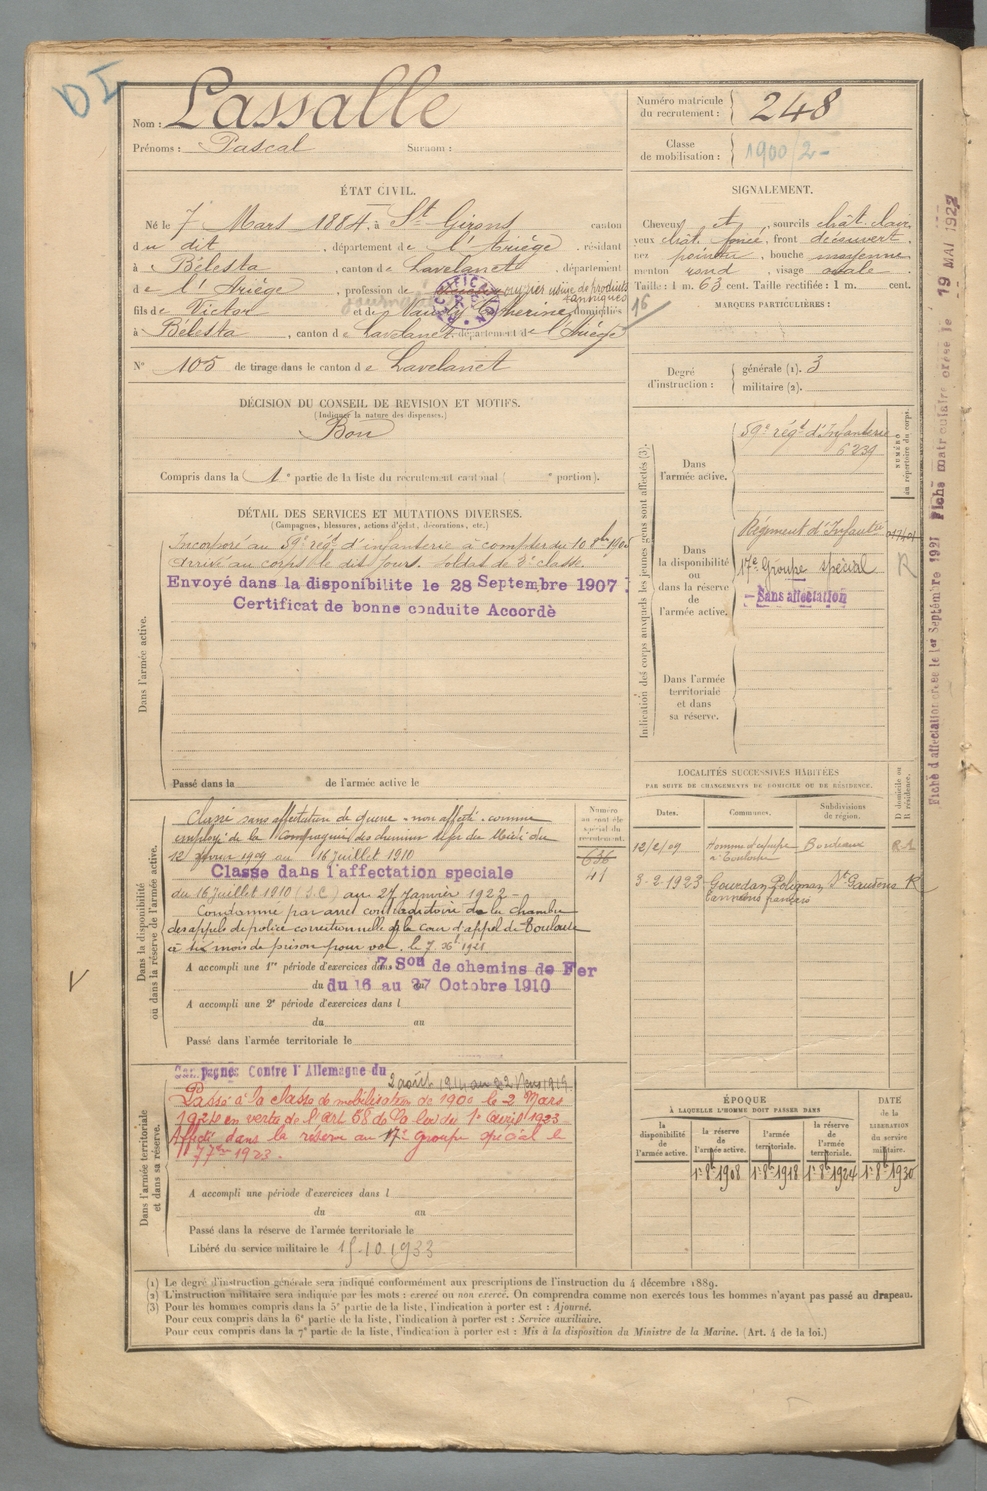 DI
Nom : Lassalle
Prénoms : Pascal Surnom :
Numéro matricule du recrutement : 248
Classe de mobilisation : 1900/2-
ÉTAT CIVIL.
Né le 7 Mars 1884, à St Girons canton
du dit, département de l'Ariège, résidant
à Bélesta, canton de Lavelanet, département
de l'Ariège, profession de ouvrier usine de produits tanniques
journalier
RECTIFICATION
fils de Victor et de Catherine, domiciliés
à Bélesta, canton de Lavelanet, département de l'Ariège
N° 105 de tirage dans le canton de Lavelanet
SIGNALEMENT.
Cheveux et, sourcils chât. clair,
yeux chât. foncé, front découvert,
nez pointu, bouche moyenne
menton rond, visage ovale.
Taille : 1 m. 63 cent. Taille rectifiée : 1 m. cent.
16
MARQUES PARTICULIÈRES :
Degré d'instruction :
générale (1). 3
militaire (2).
DÉCISION DU CONSEIL DE REVISION ET MOTIFS.
(Indiquer la nature des dispenses.)
Bon
Compris dans la 1e partie de la liste du recrutement cantonal ( e portion).
DÉTAIL DES SERVICES ET MUTATIONS DIVERSES.
(Campagnes, blessures, actions d'éclat, décorations, etc.)
Dans l'armée active.
Incorporé au 59e régt d'infanterie à compter du 10 8bre
Arrivé au corps le dit jour. Soldat de 2e classe.
Envoyé dans la disponibilité le 28 Septembre 1907.
Certificat de bonne conduite Accordé
Passé dans la de l'armée active le
Indication des corps auxquels les jeunes gens sont affectés (3).
NUMÉRO au répertoire du corps.
Dans l'armée active.
59e régt d'Infanterie
6239
Dans la disponibilité ou dans la réserve de l'armée active.
Régiment d'Infanterie
17e Groupe spécial R
Sans affectation
Dans l'armée territoriale et dans sa réserve.
Dans la disponibilité ou dans la réserve de l'armée active.
Numéro au contrôle spécial du recrutement.
636
41
Classé sans affectation de guerre "non affecté" comme
employé de la Compagnie des chemins de fer du Midi du
12 février 1909 au 16 Juillet 1910
Classé dans l'affectation spéciale
du 16 Juillet 1910 (S.C) au 27 Janvier 1922 -
Condamné par arrêt contradictoire de la chambre
des appels de police correctionnelle de la Cour d'appel de Toulouse
à six mois de prison pour vol, le 7 Xbre 1921
A accompli une 1re période d'exercices dans 7 Son de chemins de Fer
du 16 au 27 Octobre 1910
A accompli une 2e période d'exercices dans l
du au
Passé dans l'armée territoriale le
V
LOCALITÉS SUCCESSIVES HABITÉES
PAR SUITE DE CHANGEMENTS DE DOMICILE OU DE RÉSIDENCE.
Dates. Communes. Subdivisions de région. D domicile ou R résidence.
12/2/09 Homme d'équipe à Toulouse Bordeaux
3-2-1923 Gourdan Polignan St Gaudens R
Dans l'armée territoriale et dans sa réserve.
Campagnes Contre l'Allemagne du 2 août 1914 au 22 1919
Passé à la classe de mobilisation de 1900 le 2 Mars
1924 en vertu de l'art 58 de la loi du 1er avril 1923
Affecté dans la réserve au 17e groupe spécial le
7 7bre 1923.
A accompli une période d'exercices dans l
du au
Passé dans la réserve de l'armée territoriale le
Libéré du service militaire le 15.10.1933
ÉPOQUE À LAQUELLE L'HOMME DOIT PASSER DANS
DATE de la LIBÉRATION du service militaire.
la disponibilité de l'armée active. la réserve de l'armée active. l'armée territoriale. la réserve de l'armée territoriale.
1er 8bre 1908 1er 8bre 1918 1er 8bre 1924 1er 8bre 1930
(1) Le degré d'instruction générale sera indiqué conformément aux prescriptions de l'instruction du 4 décembre 1889.
(2) L'instruction militaire sera indiquée par les mots : exercé ou non exercé. On comprendra comme non exercés tous les hommes n'ayant pas passé au drapeau.
(3) Pour les hommes compris dans la 5e partie de la liste, l'indication à porter est : Ajourné.
Pour ceux compris dans la 6e partie de la liste, l'indication à porter est : Service auxiliaire.
Pour ceux compris dans la 7e partie de la liste, l'indication à porter est : Mis à la disposition du Ministre de la Marine. (Art. 4 de la loi.)
Fiche d'affectation créée le 1er Septembre 1921 Fiche matriculaire créée le 19 MAI 1922